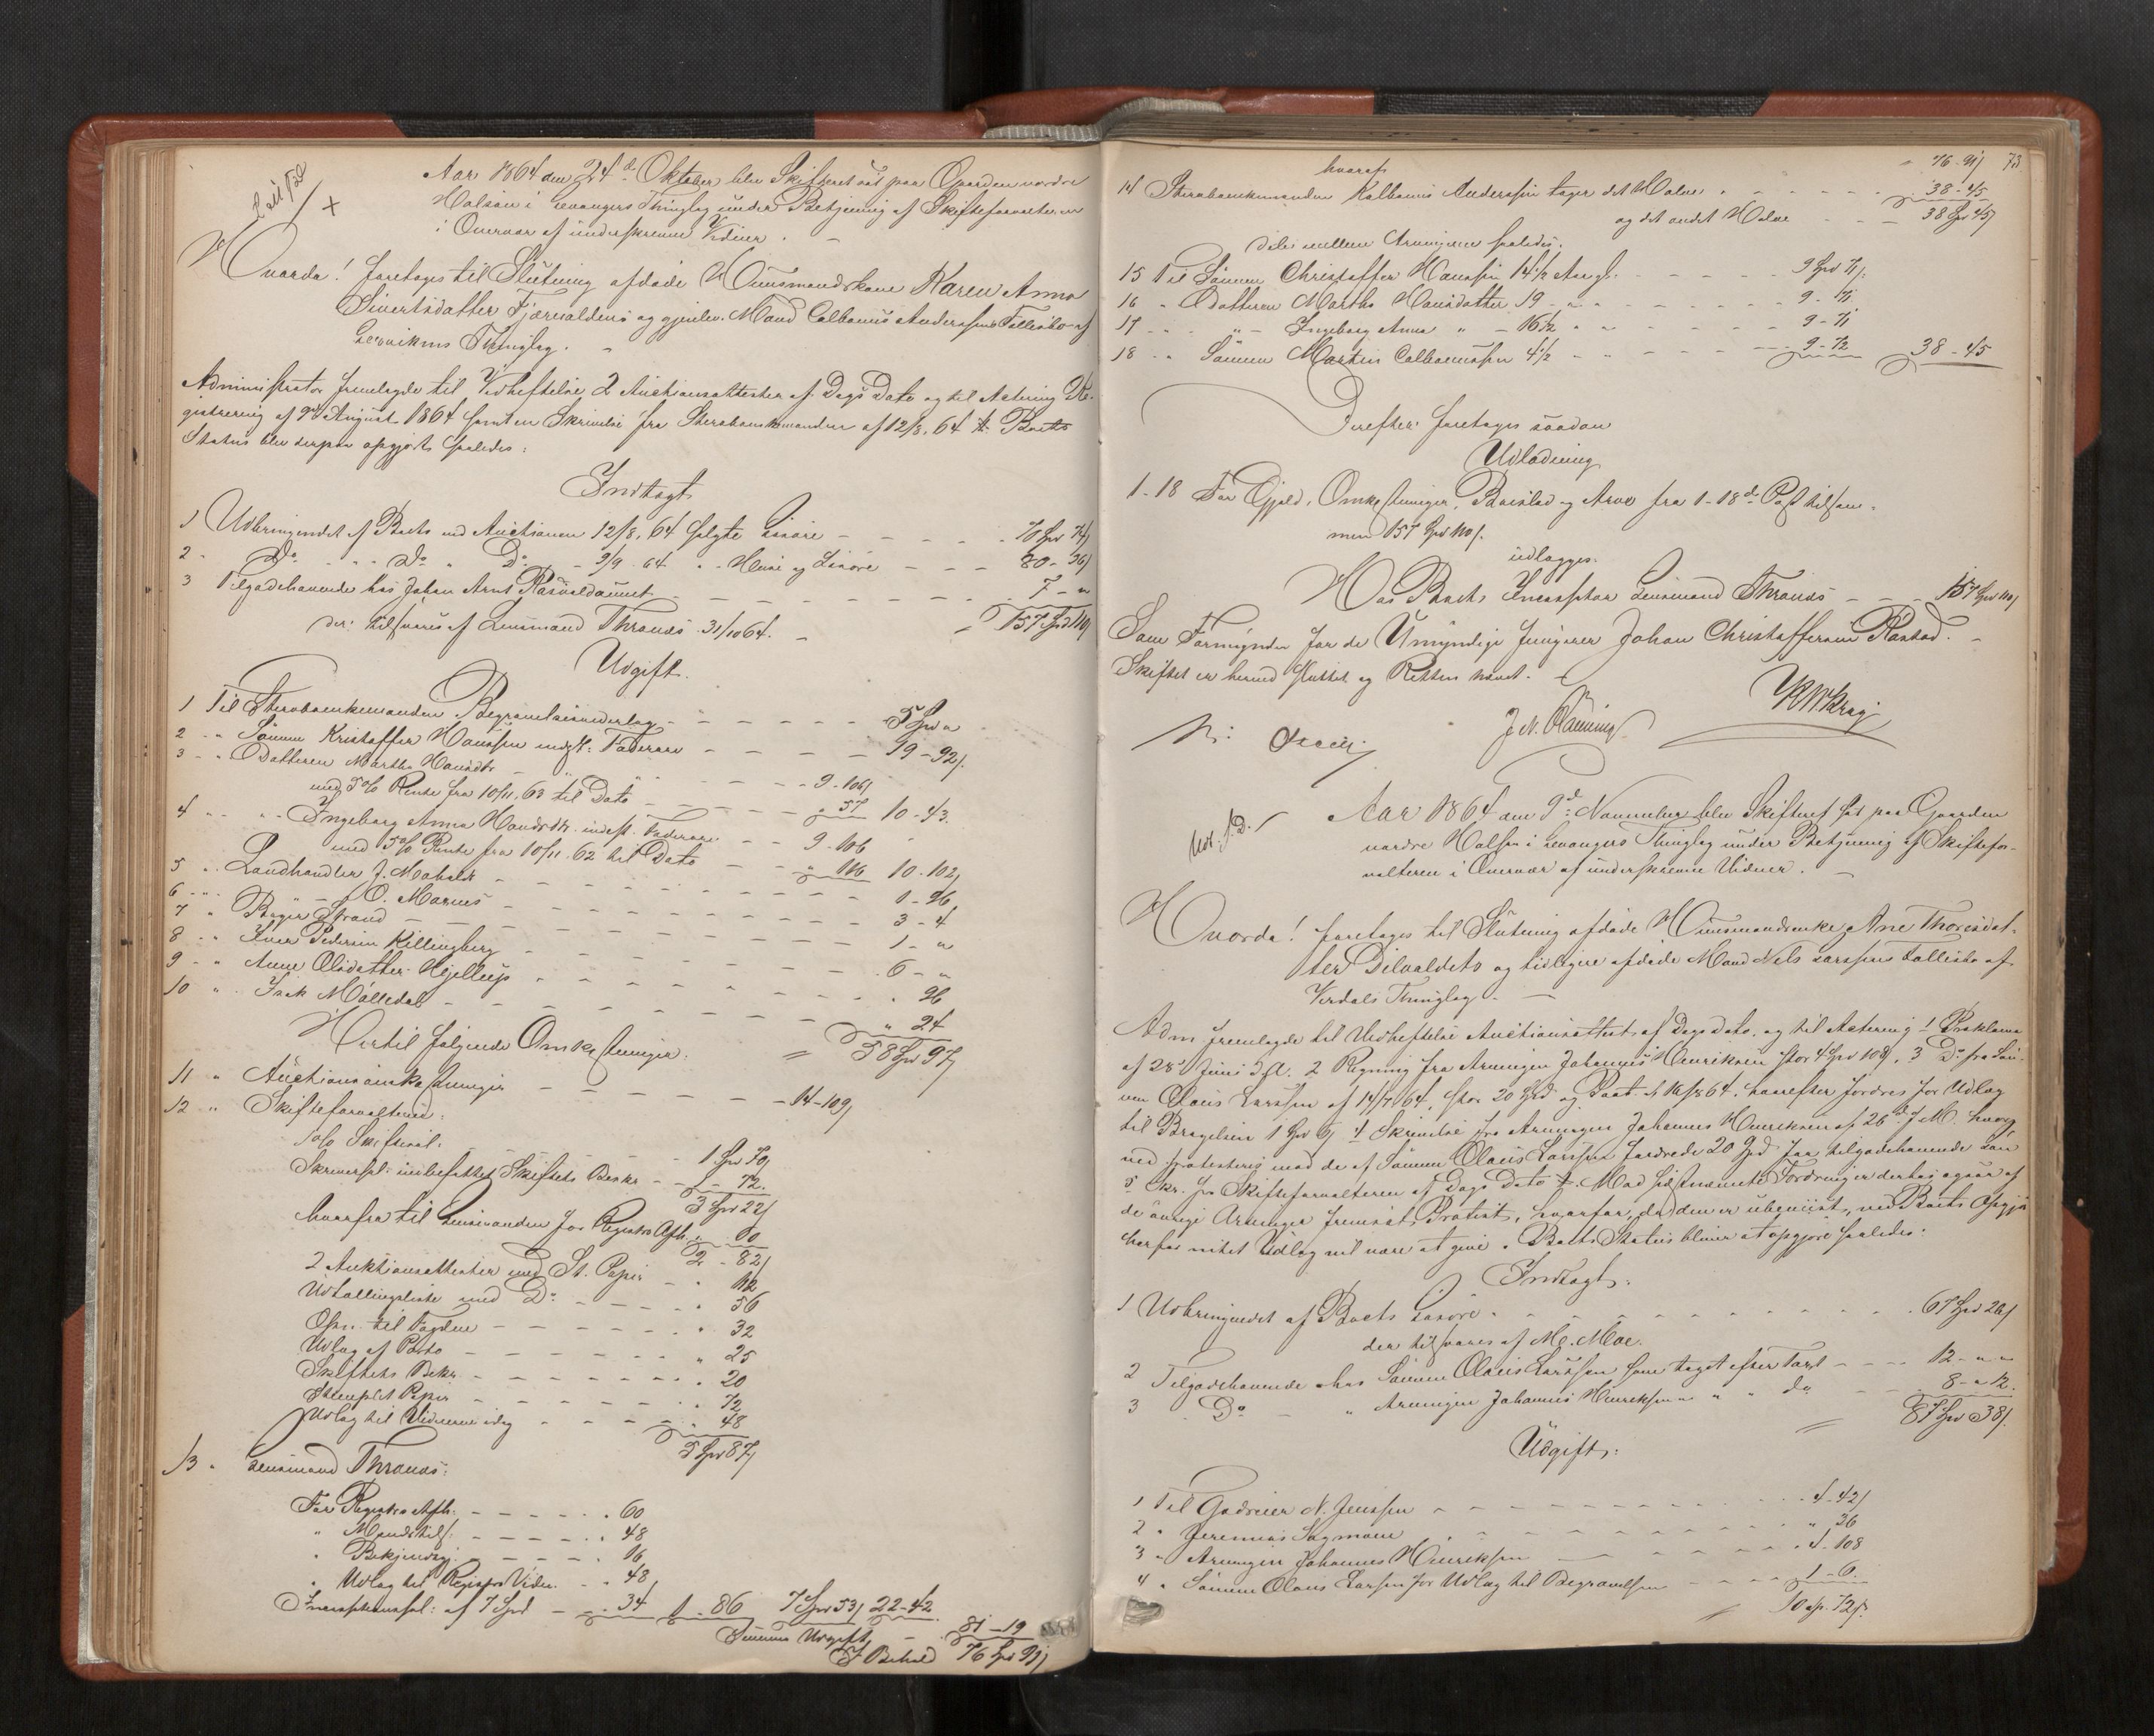 Aar 1864 den 24d Oktober blev Skifteret sat paa Gaarden nordre
Halsan i Levangers Thinglag under Betjening af Skifteforvalteren
i Overvær af underskrevne Vidner.
Hvorda! foretages til Slutning afdøde Huusmandskone Karen Anna
Sivertsdatter Fjærvaldens og gjenlev. Mand Calbanus Andersens Fællesbo af
Thinglag.
Administrator fremlagde til Vedheftelse 2 Auctionsattester af Dags Dato og til Actering Re-
gistrering af 9de August 1864 samt en Skrivelse fra Stervboenkemanden af 12/8. 64. Boets
Status blev derpaa opgjort saaledes:
Indtægt
1 Udbringendet af Boets ved Auctionen 12/8. 64 solgte Løsøre - - - 70 Spd 74
2 - Do - Do Do - 9/9. 64 - Huse og Løsøre - - - 80 - 36
3 Tilgodehavende hos Johan Arnt - - - 7 - "
157 Spd 110
der tilsvares af Lensmand Thranes 31/10 64.
Udgift.
1 Til Stervboenkemanden Begravelsesvederlag - - - 5 Spd "
2 - " Sønnen Kristoffer Hanssen indest: Faderarv - - - 19 - 92
3 - " Datteren Martha Hansdtr - " - - 9 - 106
med 5 % Rente fra 10/11. 63 til Dato - - - " 57 10 - 43.
4 - " - Ingeborg Anna Hansdtr. indest. Fadererv - - 9 - 106
med 5 % Rente fra 10/11. 62 til Dato - - " 116 10 - 102
5 - " Landhandler J. - - - 1 - 96
6 - " - O. Marcus - - - 3 - 4
7 " Bager Strand - - - 1 - "
8 - " Iver Pedersen Killingberg - - - 6 - "
9 - " Anne Olsdatter - - - " 96
10 " Isak Mølledal - - - " 24
58 Spd 97
Hertil følgende Omkostninger:
11 " Auctionsomkostninger - - - 14 - 109
12 " Skifteforvalteren:
% Skiftesal: - - 1 Spd 70
Skriversal: indbefattet Skiftets Beskr. - - 1 - 72.
3 Spd 22
hvorfra til Lensmanden for Registrs Afh. " 60
2 - 82
2 Auktionsattester med St. Papir - - " 112
Udtallingsliste med Do - - - " 56
til Fogden - - - " 32
Udlæg af Porto - - - " 25
Skiftets Bekr. - - - " 20
Stemplet Papir - - - " 72
Udlæg til Vidnerne idag - - - " 48
5 Spd 87
13 " Lensmand Thranes:
For Registrs Afh. - - - " 60
" Mandstils: - - - " 48
" Bekjendtgj: - - - " 16
" Udlæg til Registrs Vidn. - - " 48
Incassationssal: af 7 Spd - - " 34 1 - 86 7 Spd 53 22 - 42
Summa Udgift - 81 - 19
I Behold 76 Spd 91
hvoraf " 76 - 91 73
14 Sterboenkemanden Kalbanus Anderssen tager det Halve " - - - 38 - 45
og det andet Halve - - - 38 Spd 45
deles mellem Arvingerne saaledes:
15 Til Sønnen Christoffer Hanssen 14 1/2 Aar gl. - - - 9 Spd 71
16 " Datteren Martha Hansdatter 19 - " - - - 9 - 71
17 - " " - Ingeborg Anna " - 16 1/2 " - - - 9 - 71
18 - " Sønnen Martin Calbanussen 4 1/2 - - - 9 - 72 38 - 45
Derefter foretages saadan
Udlodning
1-18 For Gjæld, Omkostninger, Boeslod og Arve fra 1-18de Post tilsam-
men 157 Spd 110
udlægges:
Hos Boets Incassator Lensmand Thranes - - - 157 Spd 110
Som Formynder for de Umyndige fungerer Johan Christoffersen -
Skiftet er hermed sluttet og Retten hævet. -
Aar 1864 den 9d November blev Skifteret sat paa Gaarden
nordre Halsan i Levangers Thinglag under Betjening af Skiftefor-
valteren i Overvær af underskrevne Vidner. -
Hvorda! foretages til Slutning afdøde Huusmandsenke Ane Thoresdat-
ter og tidligere afdøde Mand Nels Larssens Fællesbo af
Værdals Thinglag. -
Adm fremlagde til Vedheftelse Auctionsattest af Dags Dato, og til Actering 1 Proklama
af 28d Juni d. A. 2 Regning fra Arvingen Johannes Henriksen stor 4 Spd 108, 3 Do fra Søn-
nen Olaus Larssen af 14/7. 64, stor 20 Spd og Paat. af 16/8 64, hvorefter fordres for Udlæg
til Begravelsen 1 Spd 6, 4 Skrivelse fra Arvingen Johannes Henriksen af 26d f. M. hvorved
protesteres mod de af Sønnen Olaus Larssen fordrede 20 Spd for tilgodehavende Løn
5 Skr. fra Skifteforvalteren af Dags Dato. Mod sidstnævnte Fordring er derhos ogsaa af
de øvrige Arvinger fremsat Protest, hvorfor, da den er ubeviist, ved Boets Opgjør
herfor intet Udlæg vil være at give. Boets Status bliver at opgjøre saaledes:
Indtægt:
1 Udbringendet af Boets Løsøre - - - 67 Spd 26
der tilsvares af M. Moe.
2 Tilgodehavende hos Sønnen Olaus Larssen som taget efter Taxt - - - 12 - " "
3 Do - " Arvingen Johannes Henriksen " " do - - 8 - " 12.
87 Spd 38
Udgift:
1 Til N. Jenssen - - - 4 - 42
2 " Jeremias Sagmoen - - - " 36
3 " Arvingen Johannes Henriksen - - - 4 - 108
4 " Sønnen Olaus Larsen for Udlæg til Begravelsen - - - 1 - 6
10 Sp. 72